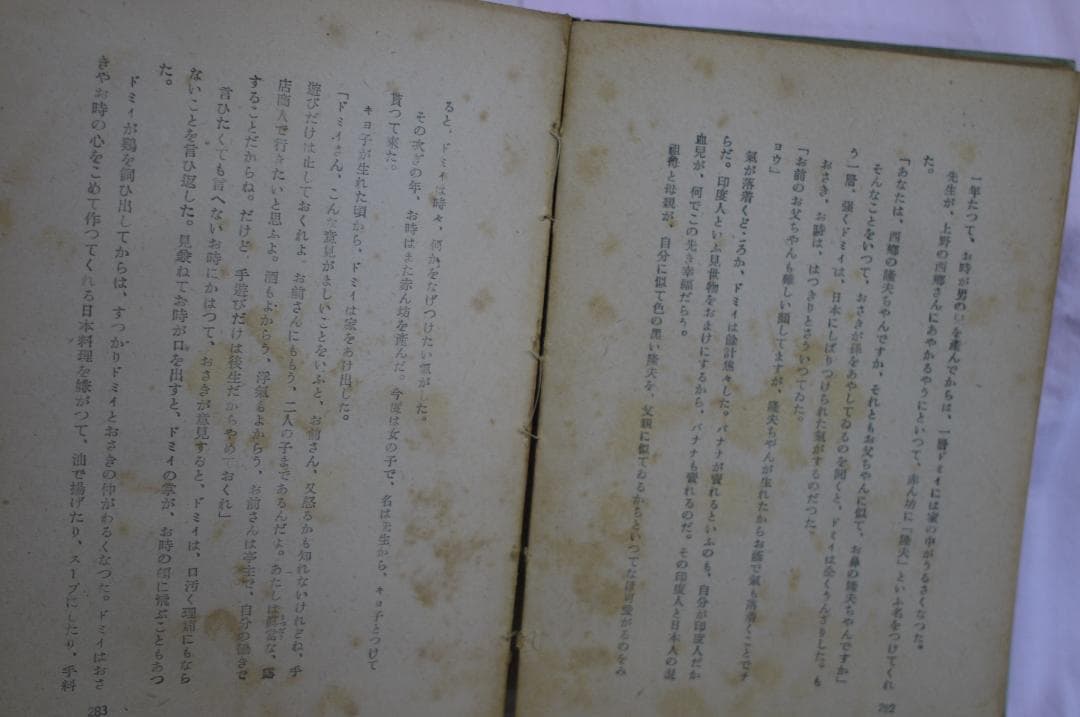 一年たつて、お時が男の子を産んでからは、一層ドミイには家の中がうるさくなつた。
先生が、上野の西郷さんにあやかるやうにといつて、赤ん坊に「隆夫」といふ名をつけてくれ
た。
「あなたは、西郷の隆夫ちやんですか、それともお父ちやんに似て、お鼻の隆夫ちやんですか」
そんなことをいつて、おさきが孫をあやしてゐるのを聞くと、ドミイは全くうんざりした。も
う一層、強くドミイは、日本にしばりつけられた氣がするのだつた。
おさき、お時は、はつきりとさういつてゐた。
「お前のお父ちやんも難しい顔してますが、隆夫ちやんが生れたからお蔭で氣も落着くことでチ
ヨウ」
氣が落着くどころか、ドミイは餘計焦々した。バナナが賣れるといふのも、自分が印度人だか
らだ。印度人といふ見世物をおまけにするから、バナナも賣れるのだ。その印度人と日本人の混
血兒が、何でこの先き幸福だらう。
祖母と母親が、自分に似て色の黒い隆夫を、父親に似てゐるからといつてな
のをみ
282
ると、ドミイは時々、何かをなげつけたい氣がした。
その次ぎの年、お時はまた赤ん坊を産んだ。今度は女の子で、名は先生から、キヨ子とつけて
貰つて來た。
キヨ子が生れた頃から、ドミイは家をあけ出した。
「ドミイさん、こんな意見がましいことをいふと、お前さん、又怒るかも知れないけれどね、手
遊びだけは止しておくれよ。お前さんにももう、二人の子まであるんだよ。あたしは
な、露
店商人で行きたいと思ふよ。酒もよからう、浮氣もよからう、お前さんは亭主だ、自分の働きで
することだからね。だけど、手遊びだけは後生だからやめておくれ」
言ひたくても言へないお時にかはつて、おさきが意見すると、ドミイは、口汚く理窟にもなら
ないことを言ひ返した。見兼ねてお時が口を出すと、ドミイの掌が、お時の頬に飛ぶこともあつ
た。
ドミイが鶏を飼ひ出してからは、すつかりドミイとおさきの仲がわるくなつた。ドミイはおさ
きやお時の心をこめて作つてくれる日本料理を嫌がつて、油で揚げたり、スープにしたり、手料
283